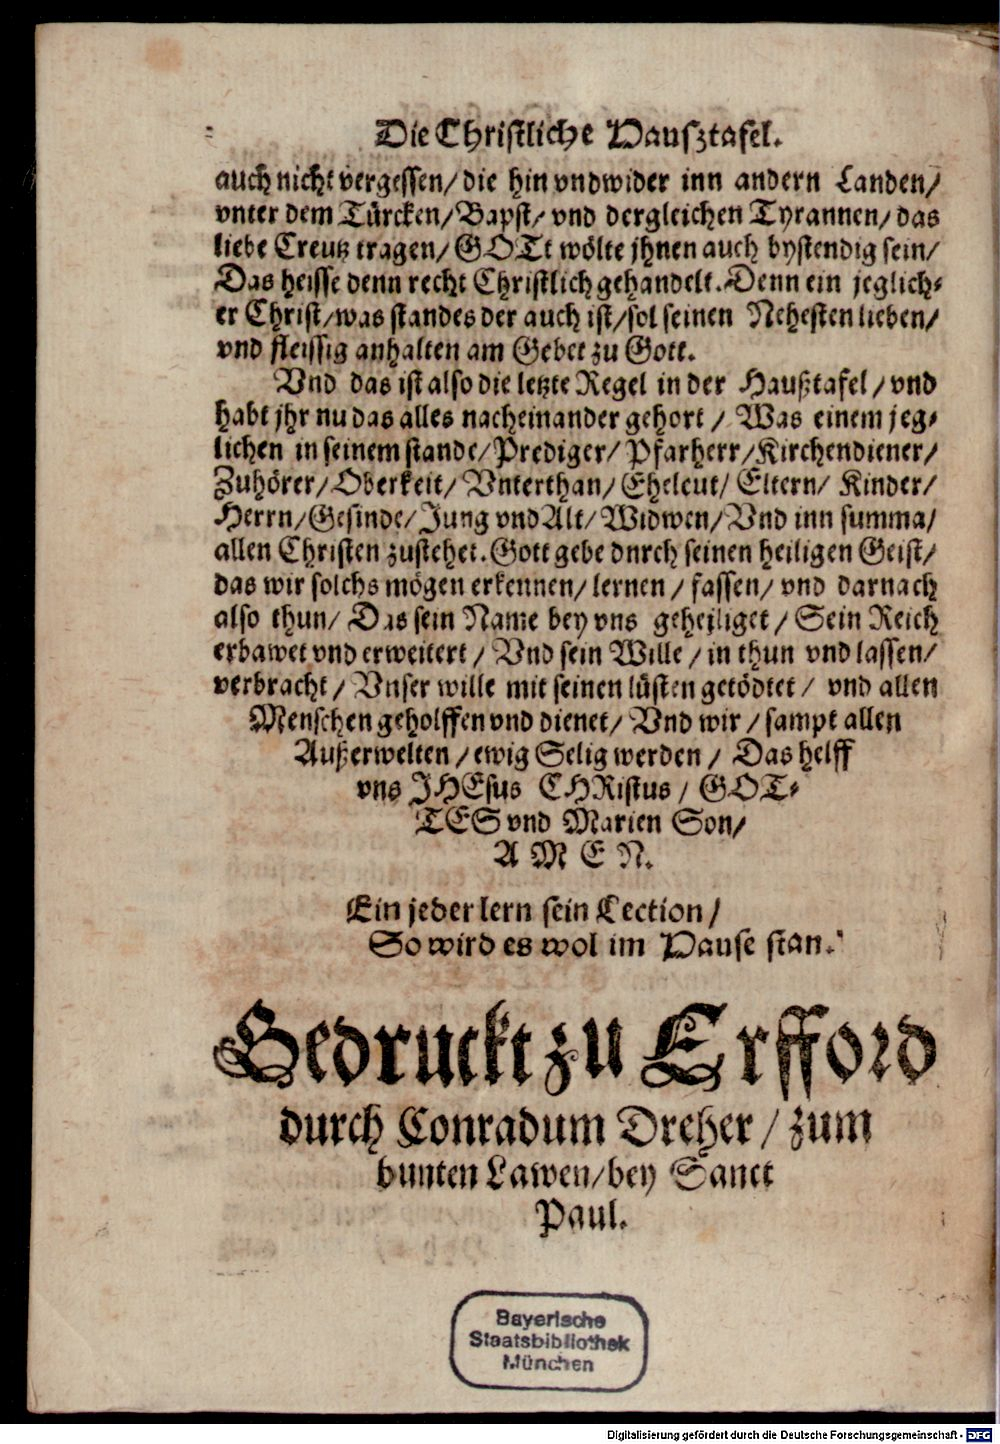 Die Christliche Hausztafel.
auch nicht vergessen/ die hin vndwider inn andern Landen/
vnter dem Türcken/ Bapst/ vnd dergleichen Tyrannen/ das
liebe Creutz tragen/ GOTt wölte jhnen auch bystendig sein/
Das heisse denn recht Christlich gehandelt. Denn ein jeglich⸗
er Christ/ was standes der auch ist/ sol seinen Nehesten lieben/
vnd fleissig anhalten am Gebet zu Gott.
Vnd das ist also die letzte Regel in der Haußtafel/ vnd
habt jhr nu das alles nacheinander gehort/ Was einem jeg⸗
lichen in seinem stande/ Prediger/ Pfarherr/ Kirchendiener/
Zuhörer/ Oberkeit/ Vnterthan/ Eheleut/ Eltern/ Kinder/
Herrn/ Gesinde/ Jung vnd Alt/ Widwen/ Vnd inn summa/
allen Christen zustehet. Gott gebe dnrch seinen heiligen Geist/
das wir solchs mögen erkennen/ lernen/ fassen/ vnd darnach
also thun/ Das sein Name bey vns geheiliget/ Sein Reich
erbawet vnd erweitert/ Vnd sein Wille/ in thun vnd lassen/
verbracht/ Vnser wille mit seinen lüsten getödtet/ vnd allen
Menschen geholffen vnd dienet/ Vnd wir/ sampt allen
Außerwelten/ ewig Selig werden/ Das helff
vns JHEsus CHRistus/ GOT⸗
TES vnd Marien Son/
A M E N.
Ein jeder lern sein Lection/
So wird es wol im Hause stan.
Gedruckt zu Erfford
durch Conradum Dreher/ zum
bunten Lawen/ bey Sanct
Paul.
Bayerische
Staatsbibliothek
München
Digitalisierung gefördert durch die Deutsche Forschungsgemeinschaft - DFG